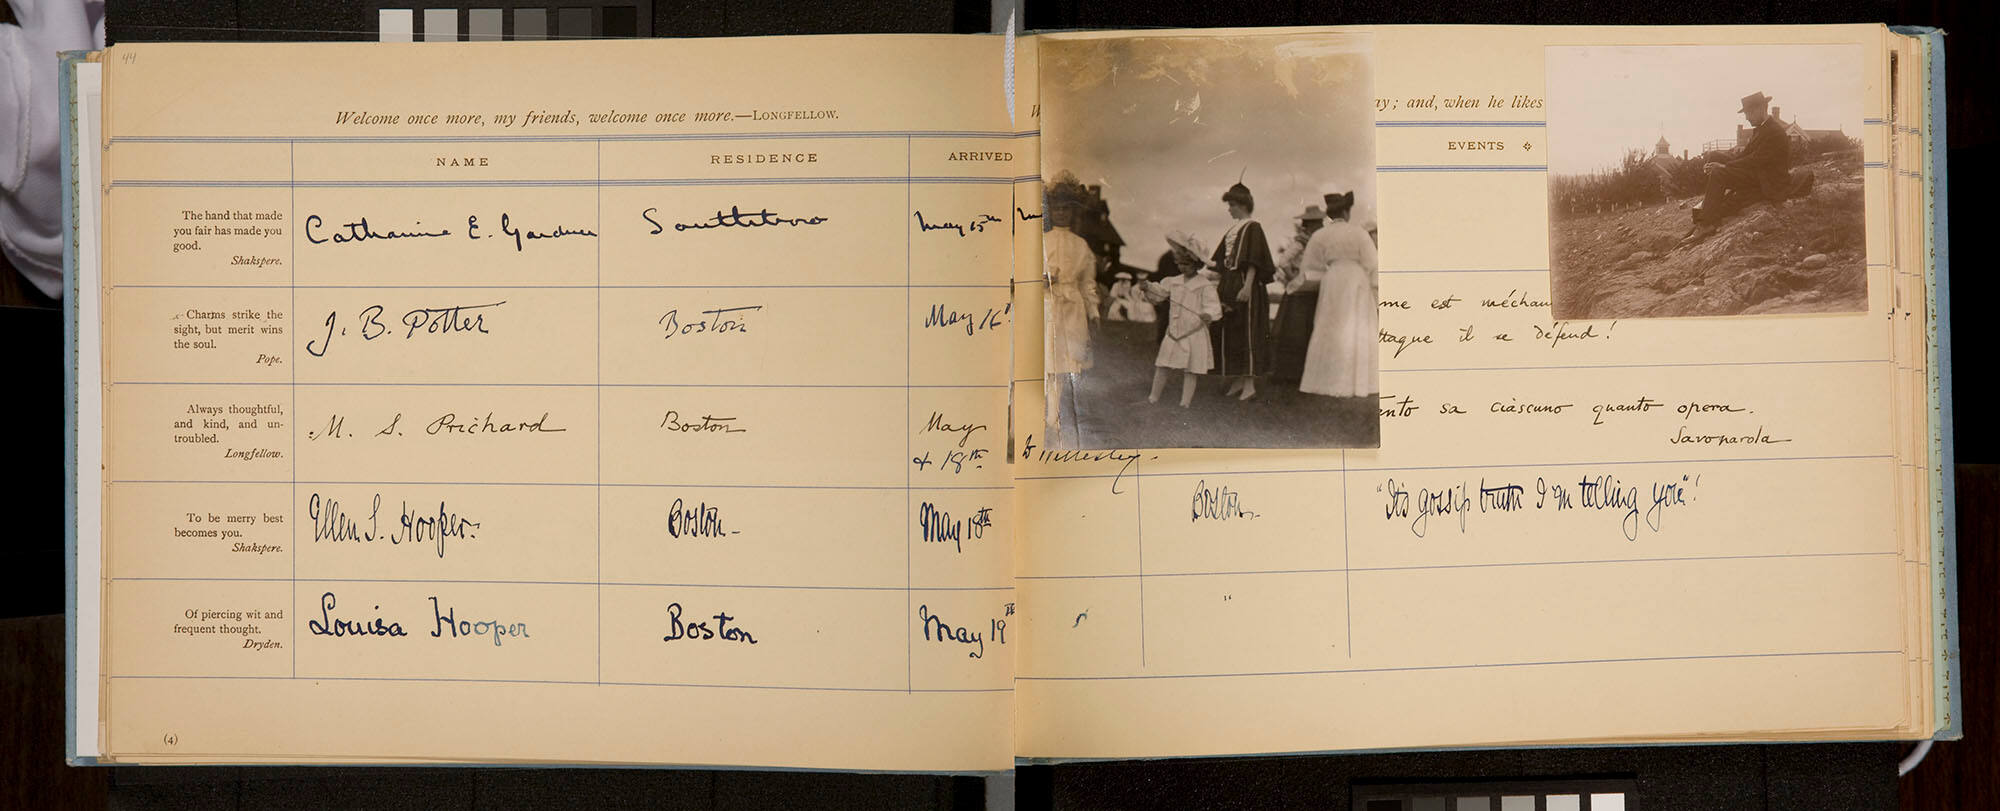 44
Welcome once more, my friends, welcome once more.—LONGFELLOW.
NAME
RESIDENCE
ARRIVED
The hand that made
you fair has made you
good.
Shakspere.
Catharine E. Gardner
Southboro
May 15th
Charms strike the
sight, but merit wins
the soul.
Pope.
J. B. Potter
Boston
May 16
Always thoughtful,
and kind, and un-
troubled.
Longfellow.
M. S. Prichard
Boston
May
& 18th
To be merry best
becomes you.
Shakspere.
Ellen S. Hooper
Boston
May 18th
Of piercing wit and
frequent thought.
Dryden.
Louisa Hooper
Boston
May 19th
(4)
ay; and, when he likes
EVENTS
me est méchan
ttaque il se défend!
ento sa ciascuno quanto opera.
Savonarola
Boston
"It's gossip truth I'm telling you"!
"